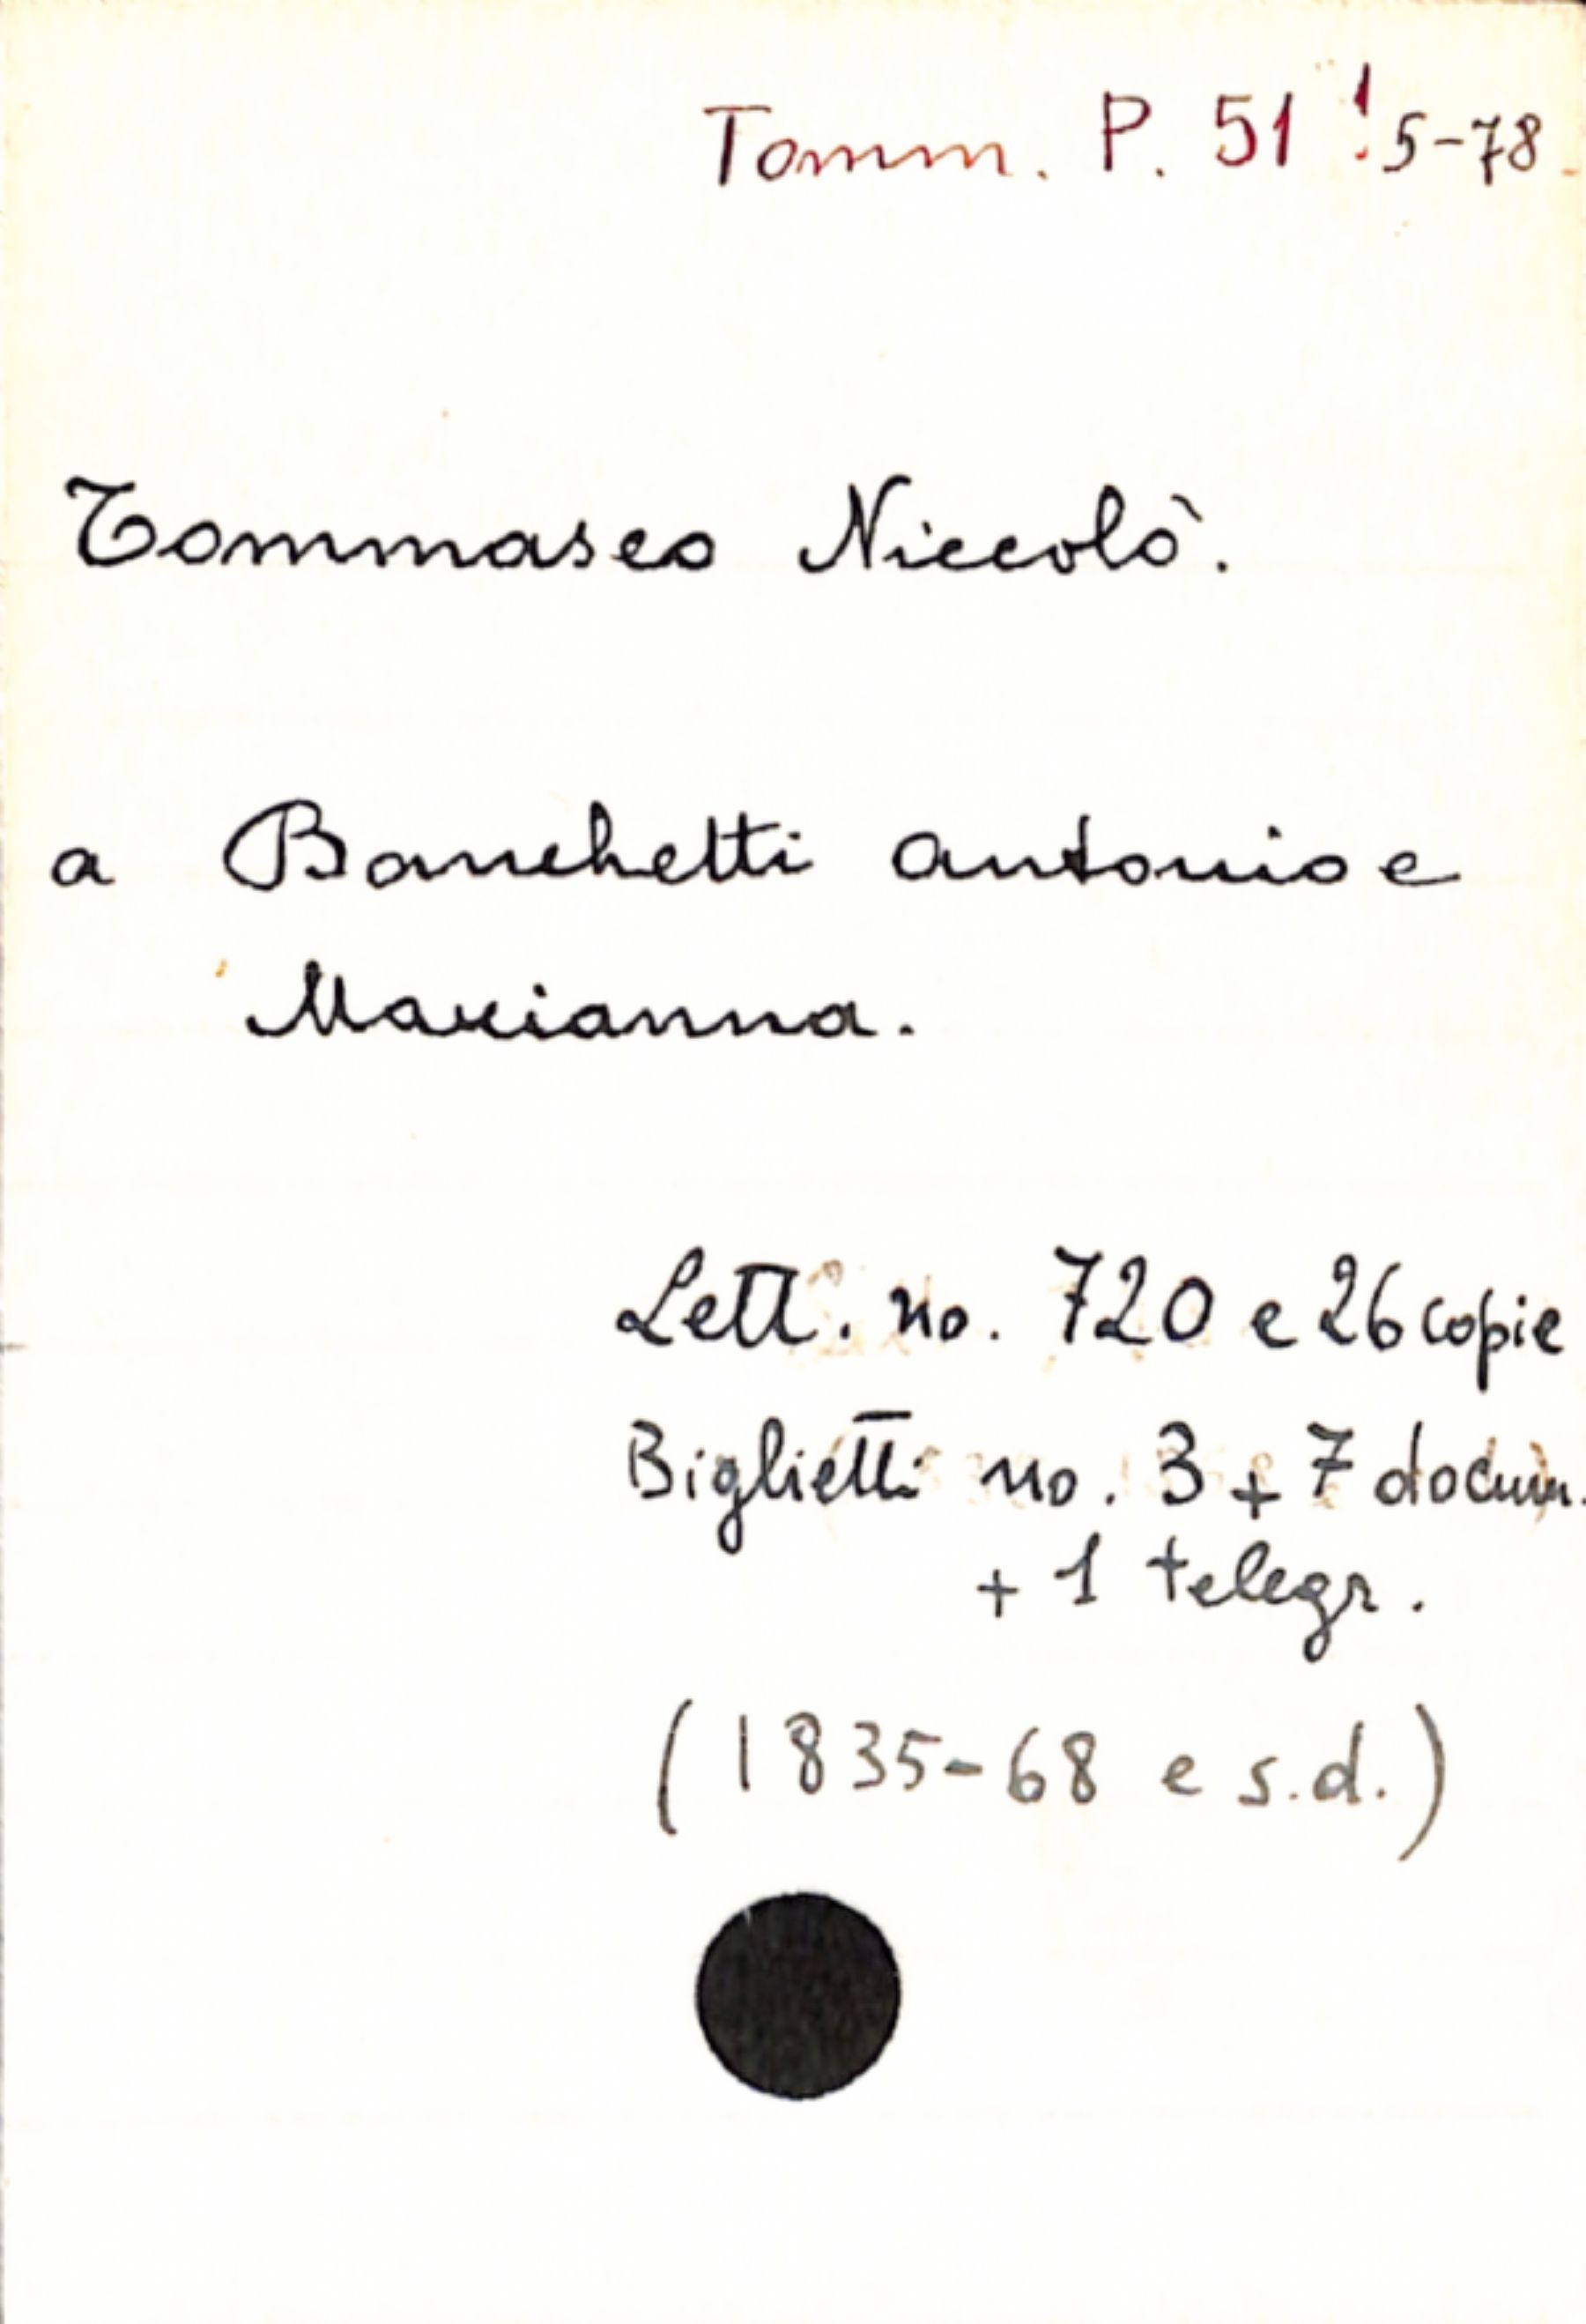 Tomm. P. 51 ! 5-78.
Tommaseo Niccolò.
a Banchetti Antonio e
Marianna.
Lett. no. 720 e 26 copie
Biglietti no. 3 + 7 docum.
+ 1 telegr.
(1835-68 e s.d.)